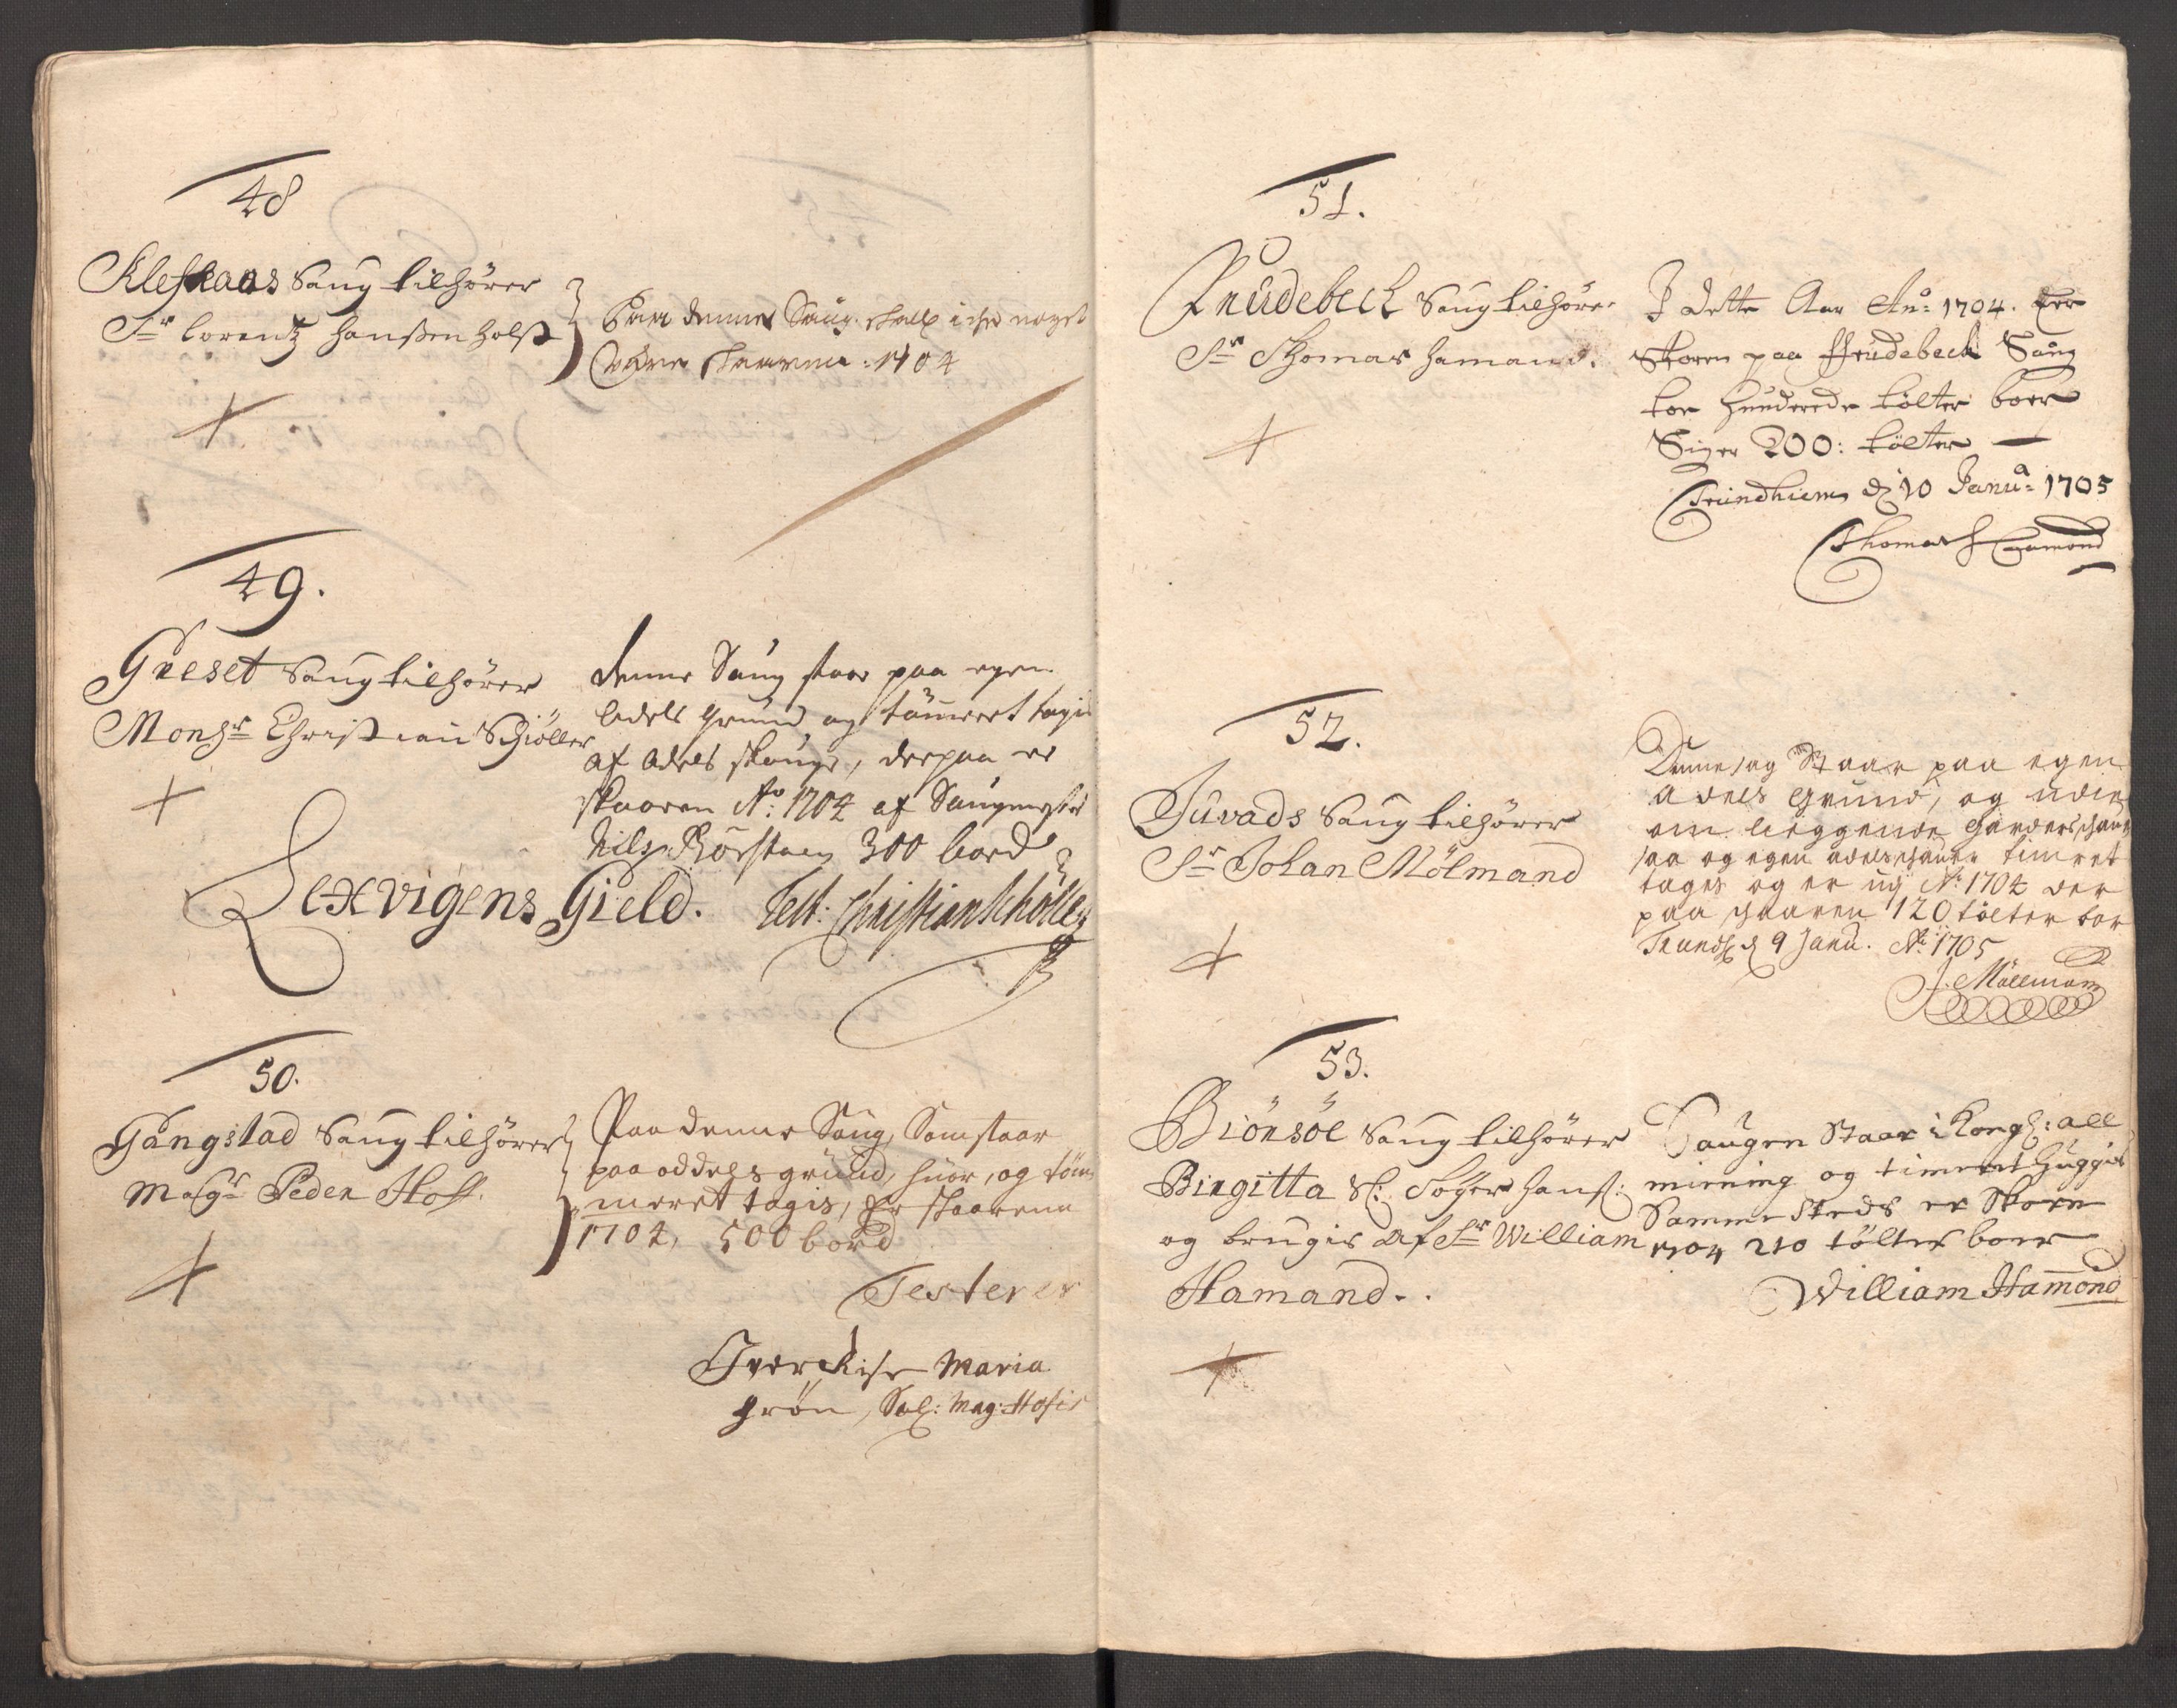 48
Klefsaas Saug tilhører
Sr Lorentz Hanssen Holst
Paa denne Saug. skall iche noget
være skaaren: 1704
49.
Græset Saug tilhører
Monsr Christian Schiøller
denne Saug staar paa egen
Odels Grund og tømmert tagis
af Odels skoug, derpaa er
skaaren Ao: 1704 af Saugmester
Nils 300 bord
Test: Christian Schøller
Lexvigens Gield.
50.
Gangstad Saug tilhører
Magr Peder Hoff.
Paa denne Saug, Som staar
paa oddels grund, huor, og tøm
meret tagis, er skaarene
1704, 500 bord
Testerer
Maria
Grøn, Sal: Mag: Hofis
51.
Frudebech Saug tilhører
Sr Thomas Hamand.
I dette Aar Ano: 1704. Eer
Skoren paa Frudebech Saug
toe Hunderede tölter boer
Siger 200: tölter
Trundhiem d 10 Janua: 1705
Thomas Hamond
52.
Juvads Saug tilhører
Sr Johan Mölmand
Denne sag Staar paa egen
adels grund, og uden
om leggende
saa og egen adels timret
tages og er udj Ao: 1704 der
paa skaaren 120 tölter bor
Trundh d 9 Janu. Ao: 1705
J. Möllmann
53.
Biönsöe Saug tilhører
Birgitta Sl: Søfer Hans:
og brugis af Sr William
Hamand..
Saugen Staar i Kongl: all
mining og timret Huggis
Samme Steds er Skorn
1704 210 tölter boer
William Hammond